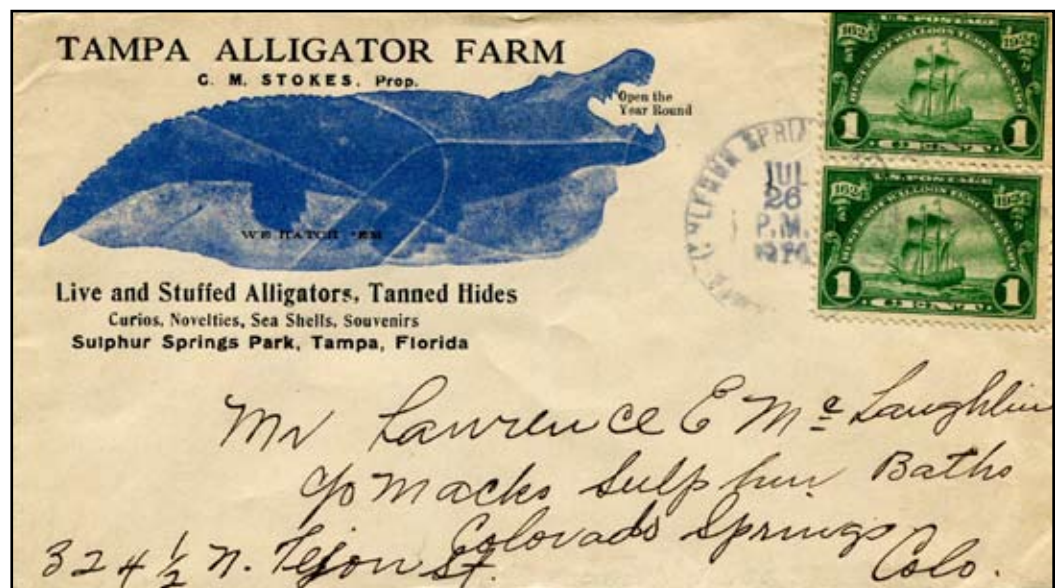 TAMPA ALLIGATOR FARM
C. M. STOKES. Prop.
Open the
Year Round
WE HATCH 'EM
Live and Stuffed Alligators, Tanned Hides
Curios, Novelties, Sea Shells, Souvenirs
Sulphur Springs Park, Tampa, Florida
SULPHUR SPRIN
JUL
26
P.M.
U.S. POSTAGE
1624 1924
HUGUENOT WALLOON TERCENTENARY
1 CENT 1
U.S. POSTAGE
1624 1924
HUGUENOT WALLOON TERCENTENARY
1 CENT 1
Mr Lawrence E Mc Laughlin
c/o Macks Sulphur Baths
324 1/2 N. Tejon St. Colorado Springs
Colo.